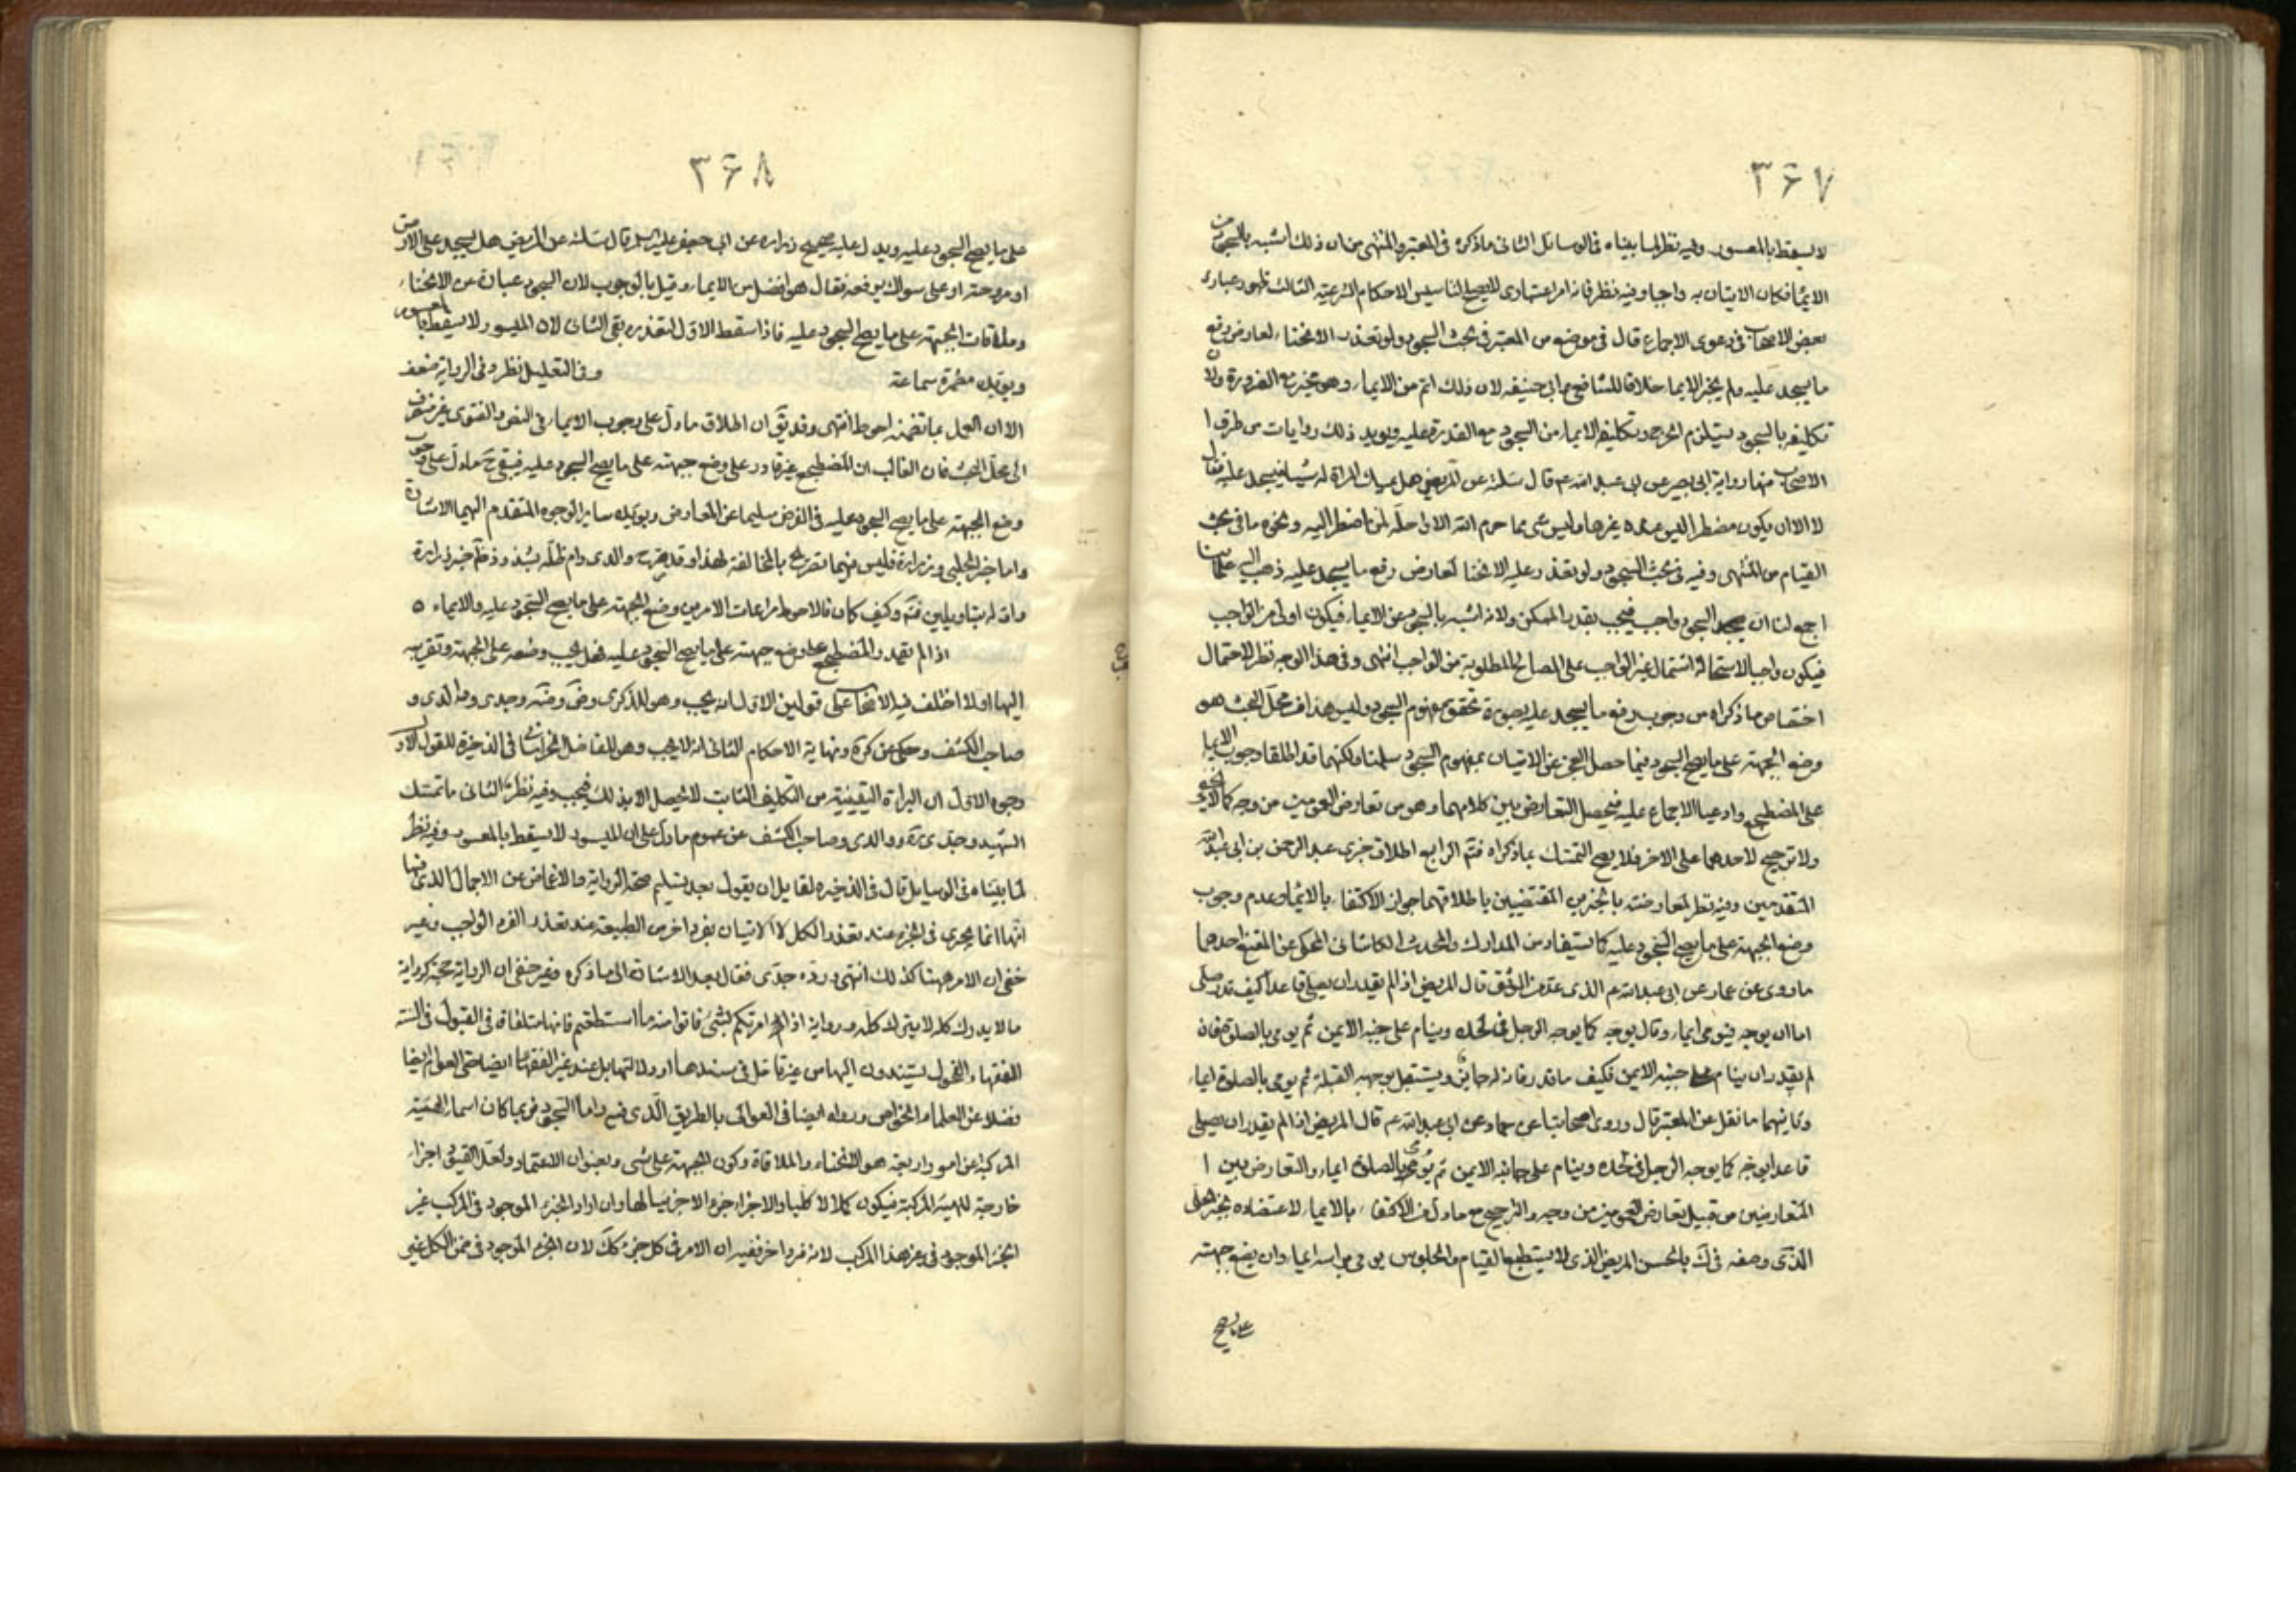 ٣۶٧
لا يسقط بالمعسور وفيه نظر لما بيناه فى الوسائل الثانى ما ذكره فى المعتبر والمنتهى من ان ذلك اشبه بالسجود من
الايماء فكان الاتيان به واجبا وفيه نظر فانه امر اعتبارى لا يصلح لتاسيس الاحكام الشرعية الثالث ظهور عبارة
بعض الاصحاب فى دعوى الاجماع قال فى موضع من المعتبر فى بحث السجود ولو تعذر الانحناء لعارض رفع
ما يسجد عليه ولم يجز الايماء خلافا للشافعى وابى حنيفه لان ذلك اتم من الايماء وهو مجز مع الضرورة ولان
تكليفه بالسجود يستلزم الحرج وتكليفه الايماء من السجود مع القدرة عليه ويؤيد ذلك روايات من طرق ا
الاصحاب منها رواية ابى بصير عن ابى عبد الله ع قال سئلته عن المريض هل يمسك المراة له شيئا فيسجد عليه فقال
لا الا ان يكون مضطرا ليس عنده غيرها وليس شئ مما حرم الله الا وا حله لمن اضطر اليه ونحوه ما فى بحث
القيام من المنتهى وفيه فى بحث السجود ولو تعذر عليه الانحنا لعارض رفع ما يسجد عليه ذهب اليه علمائنا
اجمع لنا ان السجود واجب فيجب بقدر الممكن ولانه اشبه بالسجود من الايماء فيكون اولى من الواجب
فيكون واجبا لاستحالة اشتمال غير الواجب على المصالح المطلوبة من الواجب انتهى وفى هذا الوجه نظر لاحتمال
اختصاص ما ذكراه من وجوب رفع ما يسجد عليه بصورة تحقق مفهوم السجود وليس هذا فى محل البحث هو
وضع الجبهة على ما يصح السجود فيما حصل العجز عن الاتيان بمفهوم السجود سلمنا ولكنهما قد اطلقا وجوب الايما
على المضطجع وادعيا الاجماع عليه فيحصل التعارض بين كلامهما وهو من تعارض العمومين من وجه كما لا يخفى
ولا ترجيح لاحدهما على الاخر فلا يصح التمسك بما ذكراه فتم الرابع اطلاق خبرى عبد الرحمن بن ابى عبد الله
المتقدمين وفيه نظر لمعارضته بالخبرين المقتضيين باطلاقهما جواز الاكتفاء بالايماء وعدم وجوب
وضع الجبهة على ما يصح السجود عليه كما يستفاد من المدارك والمحدث الكاشانى المحكى عن المقنع احدهما
ما روى عن عمار عن ابى عبد الله ع الذى عد من الموثق قال المريض اذا لم يقدر ان يصلى قاعدا كيف قدر صلى
اما ان يوجه فيومى ايماء وقال يوجه كما يوجه الرجل فى لحده وينام على جنبه الايمن ثم يومى بالصلوة فان
لم يقدر ان ينام على جنبه الايمن فكيف ما قدر فانه له جايز ويستقبل بوجهه القبلة ثم يومى بالصلوة ايماء
وثانيهما ما نقل عن المعتبر قال وروى اصحابنا عن حماد عن ابى عبد الله ع قال المريض اذا لم يقدر ان يصلى
قاعدا يوجه كما يوجه الرجل فى لحده وينام على جانبه الايمن ثم يومى بالصلوة ايماء والتعارض بين ا
المتعارضين من قبيل تعارض العمومين من وجه والترجيح مع ما دل على الاكتفاء بالايماء لاعتضاده بخبر الحلبى
الذى وصفه فى ك بالحسن المريض الذى لا يستطيع القيام والجلوس يومى براسه ايماء وان يضع جبهته
على ما يصح
٣۶٨
على ما يصح السجود عليه ويدل عليه صحيحه زراره عن ابى جعفر عليه السلام قال سئلته عن المريض هل يسجد على الارض
او مروحته او على سواك يرفعه فقال هو افضل من الايماء وقيل بالوجوب لان السجود عبارة عن الانحناء
وملاقات الجبهة على ما يصح السجود عليه فاذا سقط الاول لتعذره بقى الثانى لان الميسور لا يسقط بالمعسور
ويؤيده مضمرة سماعة وفى التعليل نظر وفى الرواية ضعف
الا ان العمل بما تضمنه احوط انتهى وقد يق ان اطلاق ما دل على وجوب الايماء فى النص والفتوى غير منصرف
الى محل البحث فان الغالب ان المضطجع غير قادر على وضع جبهته على ما يصح السجود عليه فيبقى ح ما دل على وجوب
وضع الجبهة على ما يصح السجود عليه فى الفرض سليما عن المعارض ويؤيده ساير الوجوه المتقدم اليها الاشارة
واما خبر الحلبى وزرارة فليس فيهما تصريح بالمخالفة لهذا وقد صرح والدى دام ظله بشذوذ خبر زرارة
واوله بتاويلين فتم وكيف كان فالاحوط مراعات الامرين وضع الجبهة على ما يصح السجود عليه والايماء ٥
اذا لم يقدر المضطجع على وضع جبهته على ما يصح السجود عليه فهل يجب وضعه على الجبهة وتقريبه
اليها اولا اختلف فيه الاصحاب على قولين الاول انه يجب وهو للذكرى وض وضه وجدى و والدى و
صاحب الكشف وحكى عن كرة ونهاية الاحكام الثانى انه لا يجب وهو للفاضل الخراسانى فى الذخيرة للقول الاول
وجوه الاول ان البراءة اليقينية من التكليف الثابت لا تحصل الا بذلك فيجب وفيه نظر الثانى ما تمسك
الشهيد وجدى ره ووالدى وصاحب الكشف من عموم ما دل على ان الميسور لا يسقط بالمعسور وفيه نظر
لما بيناه فى الوسايل قال فى الذخيره لقايل ان يقول بعد تسليم صحة الرواية والاغماض عن الاجمال الذى فيها
انها انما يجرى فى الجزء عند تعذر الكل لا الاتيان بفرد اخر من الطبيعة عند تعذر الفرد الواجب وغير
خفى ان الامر ههنا كذلك انتهى ورده جدى فقال بعد الاشارة الى ما ذكره وغير خفى ان الرواية حجة كرواية
ما لا يدرك كله لا يترك كله ورواية اذا امرتكم بشئ فاتوا منه ما استطعتم فانها متلقاة فى القبول فى السنة
الفقهاء الفحول يستندون اليها من غير تامل فى سندها او دلالتها بل عند غير الفقهاء ايضا حتى العوام ايضا
فضلا عن العلماء الخواص ورواه ايضا فى العوالى بالطريق الذى فيه واما السجود فربما كان اسما للهيئة
المركبة عن امور اربعة هو الانحناء والملاقاة وكون الجبهة على شئ وبعنوان الاعتماد ولعل القيود اجزاء
خارجية للهيئة المركبة فيكون كلا لا كليا والاجزاء جزء لا جزئيا لها وان اراد الجزء الموجود فى المركب غير
الجزء الموجود فى غير هذا المركب لانه فرد اخر ففيه ان الامر فى كل جزء كك لان الجزء الموجود فى ضمن الكل غير